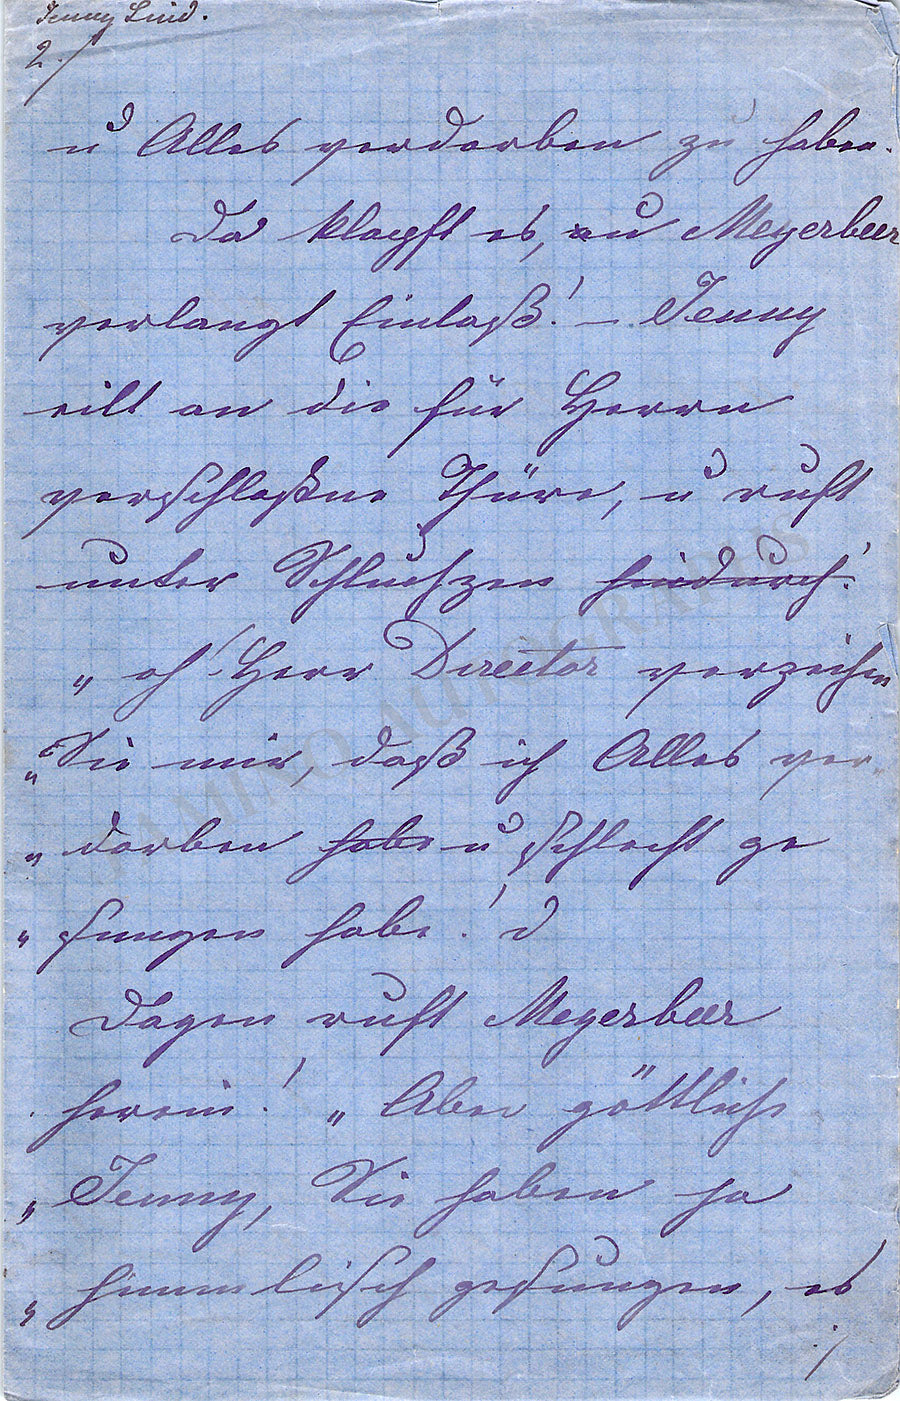 Jenny Lind.
2./
u Alles verdorben zu haben.
Da klopft es, u Meyerbeer
verlangt Einlaß! – Jenny
eilt an die für Herrn
verschloßne Thüre, u ruft
unter Schluchzen hindurch:
„ oh! Herr Director verzeihen
„ Sie mir, daß ich Alles ver-
„ dorben habe u schlecht ge
„ sungen habe!
Dagegen ruft Meyerbeer
herein! „ Aber göttliche
„ Jenny, Sie haben ja
„ himmlisch gesungen, es
TAMINO AUTOGRAPHS